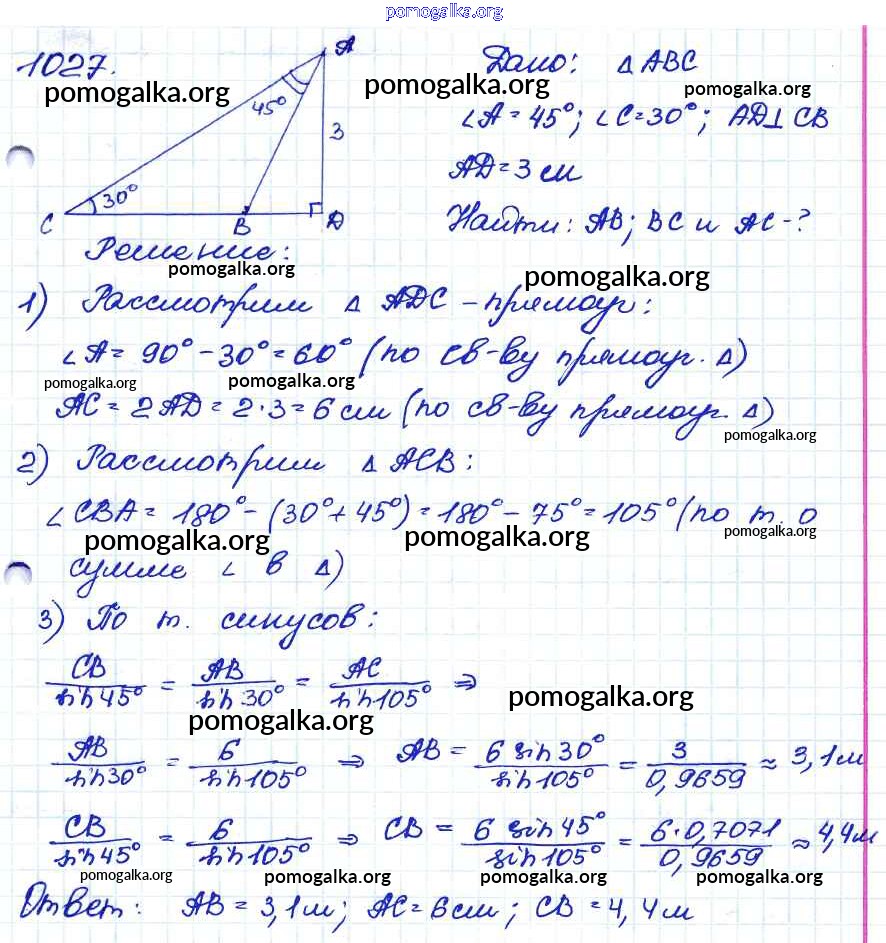 pomogalka.org
1027.
pomogalka.org
A
45°
3
30°
C
B
D
Дано: △ ABC
pomogalka.org
pomogalka.org
∠A = 45°; ∠C=30°; AD⊥ CB
AD = 3 см
Найти: AB; BC и AC - ?
Решение:
pomogalka.org
pomogalka.org
1) Рассмотрим △ ADC - прямоуг:
∠A = 90° - 30° = 60° (по св-ву прямоуг. △)
pomogalka.org
pomogalka.org
AC = 2AD = 2·3 = 6 см (по св-ву прямоуг. △)
pomogalka.org
2) Рассмотрим △ ACB:
∠CBA = 180° - (30° + 45°) = 180° - 75° = 105° (по т. о
pomogalka.org
pomogalka.org
pomogalka.org
сумме ∠ в △)
3) По т. синусов:
CB / sin 45° = AB / sin 30° = AC / sin 105° ⇒
pomogalka.org
pomogalka.org
AB / sin 30° = 6 / sin 105° ⇒ AB = 6 sin 30° / sin 105° = 3 / 0,9659 ≈ 3,1 м
CB / sin 45° = 6 / sin 105° ⇒ CB = 6 sin 45° / sin 105° = 6·0,7071 / 0,9659 ≈ 4,4 м
pomogalka.org
pomogalka.org
pomogalka.org
Ответ: AB = 3,1 м; AC = 6 см; CB = 4,4 м